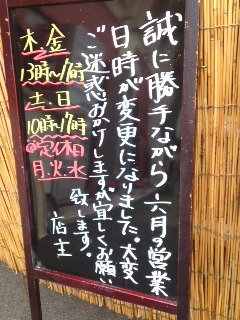 誠に勝手ながら六月の営業
日時が変更になりました。大変
ご迷惑おかけしますが宜しくお願い
致します。
店主
木、金
13時〜16時
土、日
10時〜16時
@定休日
月、火、水